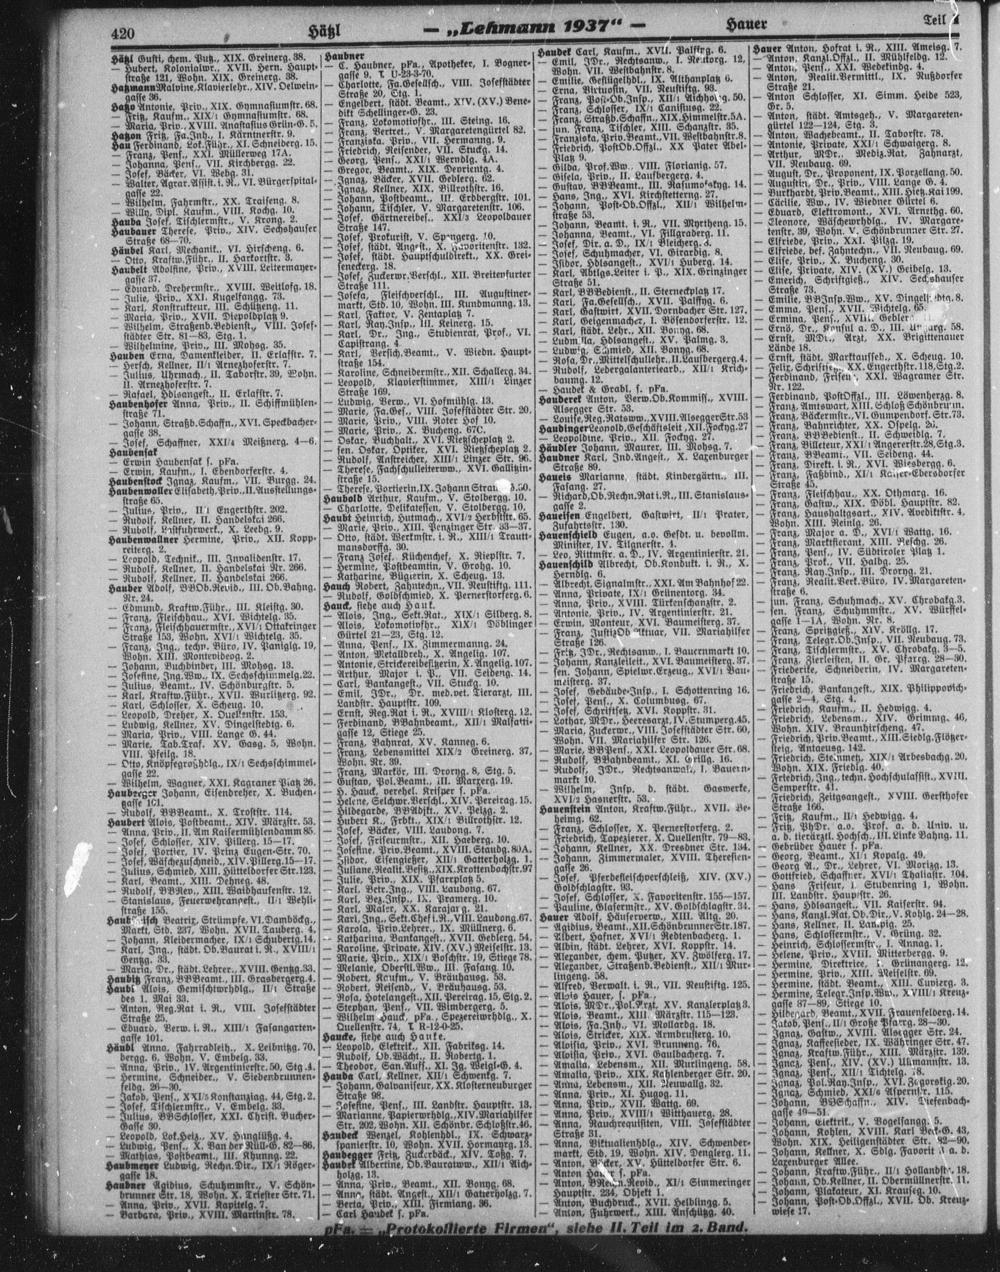 420
Hätzl
— „Lehmann 1937“ —
Hauer
Teil
Hätzl Gusti, chem. Putz., XIX. Greinerg. 38.
— Hubert, Kolonialw., XVII. Hern. Haupt-
straße 121, Wohn. XIX. Greinerg. 38.
Hatzmann Malvine, Klavierlehr., XIV. Oelwein-
gasse 36.
— Fritz, Kaufm., XIX/1 Gymnasiumstr. 68.
— Maria, Priv., XVIII. Anastasius Grün-G. 5.
Hau Ferdinand, Lok.Führ., XI. Schneiderg. 15.
— Franz, Pens., XXI. Müllerweg 17A.
— Johanna, Pens., VII. Kirchberg. 22.
— Josef, Bäcker, VI. Webg. 31.
gasse 22.
— Wilhelm, Fahrmstr., XX. Traiseng. 8.
— Willy, Dipl. Kaufm., VIII. Kochg. 10.
Hauba Josef, Tischlermstr., V. Krong. 2.
Haubaner Therese, Priv., XIV. Sechshauser
Straße 68—70.
Häubel Karl, Mechanik., VI. Hirscheng. 6.
— Otto, Kraftw.Führ., II. Harkortstr. 3.
Haubelt Adolfine, Priv., XVIII. Leitermayer-
gasse 37.
— Eduard, Drehermstr., XVIII. Weitlofg. 18.
— Julie, Priv., XXI. Kugelfangg. 73.
— Karl, Konstrukteur, III. Schützeng. 11.
— Maria, Priv., XVII. Diepoldplatz 9.
— Wilhelm, Straßenb.Bedienst., VIII. Josef-
städter Str. 81—83, Stg. 1.
— Wilhelmine, Priv., III. Mohsg. 35.
Hauben Erna, Damenkleider, II. Erlafstr. 7.
— Hersch, Kellner, II/1 Arnezhoferstr. 7.
— Julius, Uhrmach., II. Taborstr. 39, Wohn.
II. Arnezhoferstr. 7.
— Rafael, Hdlsangest., II. Erlafstr. 7.
Haubenhofer Anna, Priv., II. Schiffmühlen-
straße 71.
— Johann, Straßb.Schaffn., XVI. Speckbacher-
gasse 38.
— Josef, Schaffner, XXI/4 Meißnerg. 4—6.
Haubensak
— Erwin Haubensak s. pFa.
— Erwin, Kaufm., I. Ebendorferstr. 4.
Haubenstock Ignaz, Kaufm., VII. Burgg. 24.
Haubenwaller Elisabeth, Priv., II. Ausstellungs-
straße 65.
— Julius, Priv., II/1 Engerthstr. 202.
— Rudolf, Kellner, II. Handelskai 266.
Haubenwallner Hermine, Priv., XII. Kopp-
reiterg. 2.
— Leopold, Technik., III. Invalidenstr. 17.
— Rudolf, Kellner, II. Handelskai Nr. 266.
— Rudolf, Kellner, II. Handelskai 266.
Hauber Adolf, BBOb.Revid., III. Ob.Bahng.
Nr. 24.
— Edmund, Kraftw.Führ., III. Kleistg. 30.
— Franz, Fleischhau., XVI. Wichtelg. 35.
— Franz, Fleischhauermstr., XVI/1 Ottakringer
Straße 153, Wohn. XVI/1 Wichtelg. 35.
— Franz, Ing., techn. Büro, IV. Paniglg. 19,
Wohn. XIII. Montevideog. 2.
— Johann, Buchbinder, III. Mohsg. 13.
— Josefine, Ing.Ww., IX. Sechsschimmelg. 22.
— Julius, Beamt., IV. Schönburgstr. 5.
— Karl, Kraftw.Führ., XVII. Wurlitzerg. 92.
— Karl, Schlosser, X. Scheug. 10.
— Leopold, Dreher, X. Quellenstr. 153.
— Ludwig, Kellner, XV. Dingelstedtg. 6.
— Maria, Priv., VIII. Lange G. 44.
— Marie, Tab.Traf., XV. Gasg. 5, Wohn.
VIII. Pfeilg. 18.
— Otto, Knöpfegroßhdlg., IX/1 Sechsschimmel-
gasse 22.
— Wilhelm, Wagner, XXI. Kagraner Platz 26.
Hauberger Johann, Eisendreher, X. Buchen-
gasse 101.
— Rudolf, BBBeamt., X. Troststr. 114.
Haubert Alois, Postbeamt., XIV. Märzstr. 53.
— Anna, Priv., II. Am Kaisermühlendamm 85.
— Josef, Schlosser, XIV. Pillerg. 15—17.
— Josef, Portier, IV. Prinz Eugen-Str. 70.
— Josef, Wäschezuschneid., XIV. Pillerg. 15—17.
— Julius, Schmied, XIII. Hütteldorfer Str. 123.
— Karl, Beamt., XIII. Dehneg. 48.
— Rudolf, BBRev., XIII. Waidhausenstr. 12.
— Stanislaus, Feuerwehrangest., II/1 Wehli-
straße 155.
Markt, Std. 237, Wohn. XVII. Tauberg. 4.
— Johann, Kleidermacher, IX/1 Schubertg. 14.
— Karl, Ing., städt. Ob.Baurat i. R., XVIII/1
Gentzg. 33.
— Maria, Dr., städt. Lehrer, XVIII. Gentzg. 33.
Haubitz Franz, BBBeamt., III. Grasbergerg. 4.
Haubl Alois, Gemischtwrhdlg., II/1 Straße
des 1. Mai 33.
— Anton, Reg.Rat i. R., VIII. Josefstädter
Straße 25.
— Eduard, Verw. i. R., XIII/1 Fasangarten-
gasse 101.
Häubl Anna, Fahrradleih., X. Leibnitzg. 70.
— Anna, Priv., IV. Argentinierstr. 50, Stg. 4.
— Hermine, Schneider., V. Siebenbrunnen-
feldg. 26—30.
— Jakob, Pens., XXI/5 Konstanziag. 44, Stg. 2.
— Josef, Tischlermstr., V. Embelg. 33.
— Julius, BBSchlosser, XXI. Christ. Bucher-
Gasse 30.
— Leopold, Lok.Heiz., XV. Hanglüßg. 4.
— Ludwig, Pens., X. Van der Nüll-G. 82—86.
— Mathias, Postbeamt., III. Khunng. 22.
Haubmeyer Ludwig, Rechn.Dir., IX/1 Röger-
gasse 18.
Haubner Ägidius, Schuhmmstr., V. Schön-
brunner Str. 18, Wohn. X. Triester Str. 71.
— Anna, Priv., XVII. Kapitelg. 7.
— Barbara, Priv., XVIII. Martinstr. 78.
Haubner
— C. Haubner, pFa., Apotheker, I. Bogner-
gasse 9. T. U-23-3-70.
— Charlotte, Fa.Gesellsch., VIII. Josefstädter
Straße 20, Stg. 1.
— Engelbert, städt. Beamt., XIV. (XV.) Bene-
dikt Schellinger-G. 23.
— Franz, Lokomotivfhr., III. Steing. 16.
— Franz, Vertret., V. Margaretengürtel 82.
— Franziska, Priv., VII. Hermanng. 9.
— Friedrich, Reisender, VII. Stuckg. 14.
— Georg, Pens., XXI/1 Werndlg. 4A.
— Gregor, Beamt., XIX. Devrientg. 4.
— Ignaz, Bäcker, XVII. Geblerg. 62.
— Ignaz, Kellner, XIX. Billrothstr. 16.
— Johann, Postbeamt., III. Erdbergstr. 101.
— Johann, Tischler, V. Margaretenstr. 106.
— Josef, Gärtnereibes., XXI/3 Leopoldauer
Straße 147.
— Josef, Prokurist, V. Spengerg. 10.
— Josef, städt. Angest., X. Favoritenstr. 132.
— Josef, städt. Hauptschuldirekt., XX. Grei-
seneckerg. 18.
— Josef, Zuckerw.Verschl., XII. Breitenfurter
Straße 111.
— Josefa, Fleischverschl., III. Augustiner-
markt, Std. 10, Wohn. III. Kundmanng. 13.
— Karl, Faktor, V. Zentaplatz 7.
— Karl, Ray.Insp., III. Keinerg. 15.
— Karl, Dr., Ing., Studienrat, Prof., VI.
Capistrang. 4.
— Karl, Versich.Beamt., V. Wiedn. Haupt-
straße 154.
— Karoline, Schneidermstr., XII. Schallerg. 34.
— Leopold, Klavierstimmer, XIII/1 Linzer
Straße 169.
— Ludwig, Verw., VI. Hofmühlg. 13.
— Marie, Fa.Ges., VIII. Josefstädter Str. 20.
— Marie, Priv., VIII. Roter Hof 10.
— Marie, Priv., X. Bucheng. 67C.
— Oskar, Buchhalt., XVI. Nietzscheplatz 2.
— sen. Oskar, Optiker, XVI. Nietzscheplatz 2.
— Rudolf, Anstreicher, XIII/1 Linzer Str. 96.
— Therese, Fachschulleitersww., XVI. Gallitzin-
straße 15.
Haubold Arthur, Kaufm., V. Stolbergg. 10.
— Charlotte, Delikatessen, V. Stolbergg. 10.
Haubt Heinrich, Hutmach., XVI/2 Herbststr. 65.
— Marie, Priv., XIII. Penzinger Str. 33—37.
— Otto, städt. Werkmstr. i. R., XIII/1 Trautt-
mansdorffg. 30.
— Franz Josef, Küchenchef, X. Rieplstr. 7.
— Hermine, Postbeamtin, V. Grohg. 10.
— Katharine, Büglerin, X. Scheug. 13.
Hauch Robert, Zahntechn., VII. Neustiftg. 111.
— Rudolf, Goldschmied, X. Pernerstorferg. 6.
Hauck, siehe auch Hauk.
— Alois, Ing., Sekt.Rat., XIX/1 Silberg. 8.
— Alois, Lokomotivfhr., XIX/1 Döblinger
Gürtel 21—23, Stg. 12.
— Anna, Pens., IX. Zimmermanng. 24.
— Anton, Metalldreh., X. Angelig. 107.
— Antonie, Strickereibesitzerin, X. Angelig. 107.
— Arthur, Major i. P., VII. Seideng. 14.
— Carl, Bankangest., VII. Stuckg. 10.
— Emil, JDr., Dr. med.vet. Tierarzt, III.
Landstr. Hauptstr. 109.
— Ernst, Reg.Rat i. R., XVIII/1 Klosterg. 12.
— Ferdinand, BBBahnbeamt., XII/1 Malfatti-
gasse 12, Stiege 25.
— Franz, Bahnrat, XV. Kanneg. 6.
— Franz, Lebensmittel XIX/2 Greinerg. 37,
Wohn. Nr. 39.
— Franz, Markör, III. Dorotheerg. 8, Stg. 5.
— Gustav, Pol.Beamt., III. Marxerg. 19.
— H. Hauck, verehel. Krifper s. pFa.
— Helene, Selchwr.Verschl., XIV. Pereirag. 15.
— Hildegarde, BBAdjkt., XV. Pelzg. 2.
— Hubert K., Frdkt., XIX/1 Billrothstr. 12.
— Josef, Bäcker, VIII. Laudong. 7.
— Josef, Friseurmstr., XII. Haebergg. 10.
— Josefine, Priv.Beamt., VIII. Laudong. 80A.
— Isidor, Eisengießer, XII/1 Gatterholzg. 1.
— Juliane, Realit.Besitz., XIX. Krottenbachstr. 97
— Julie, Priv., XIX. Pfarrplatz 5.
— Karl, Betr.Ing., VIII. Laudong. 67.
— Karl, Bez.Insp., IX. Pramerg. 10.
— Karl, Maler, XX. Karajang. 21.
— Karl, Ing., Sekt.Chef i. R., VIII. Laudong. 67.
— Karola, Priv.Lehrer., IX. Müllnerg. 6.
— Katharina, Bankangest., XVII. Geblerg. 54.
— Karoline, Private, XIV. (XV.) Meiselstr. 13.
— Marie, Priv., XIX/1 Boschstr. 19, Stiege 78.
— Melanie, Oberstl.Ww., III. Fasang. 10.
— Robert, Kaufm., V. Bräuhausg. 53.
— Robert, Reisend., V. Bräuhausg. 53.
— Rosa, Hotelangest., XII. Pereirag. 15, Stg. 2.
— Stephan, Pens., VII. Wimbergerg. 5.
— Wilhelm Hauck, pFa., Spezereiwrhdlg., X.
Quellenstr. 74, T. R-12-0-25.
Haucke, siehe auch Hauke.
— Leopold, Elektrik., XII. Fabriksg. 14.
— Rudolf, Ob.Wächt., II. Robertg. 1.
— Theodor, San.Aufs., XI. Ig. Weigl-G. 4.
Hauda Carl, Kellner, XII/1 Schwenkg. 7.
— Johann, Galvaniseur, XX. Klosterneuburger
Straße 98.
— Josefine, Pens., III. Landstr. Hauptstr. 13.
— Marianne, Papierwrhdlg., XIV. Mariahilfer
Str. 202, Wohn. XII. Schönbr. Schloßstr. 46.
Haudeck Wenzel, Kohlenhdl., IX. Schwarz-
spanierstr. 10, Wohn. XVII. Hormayrg. 13.
Haudegger Fritz, Zuckerbäck., XIV. Toßg. 7.
Haudek Albertine, Ob.Bauratww., XII/1 Aich-
holzg. 13.
— Anna, Priv., Beamt., XII. Bonyg. 68.
— Anna, städt. Angest., XII/1 Gatterholzg. 7.
— Berta, Priv., XIII. Firmiang. 36.
— Carl Haudek s. pFa.
Haudek Carl, Kaufm., XVII. Palffyg. 6.
Wohn. VII. Westbahnstr. 8.
— Emilie, Geflügelhdl., IX. Althanplatz 6.
— Erna, Virtuosin, VII. Neustiftg. 93.
— Franz, Post-Ob.Insp., XII/1 Aichholzg. 50.
— Franz, Schlosser, IX/1 Canisiusg. 22.
— Franz, Straßb.Schaffn., XIX. Himmelstr. 5A.
— jun. Franz, Tischler, XIII. Schanzstr. 35.
— Franziska, Priv.Beamt., VII. Westbahnstr. 8.
— Friedrich, PostOb.Offzl., XX. Pater Abel-
Platz 9.
— Gilda, Prof.Ww., VIII. Florianig. 57.
— Gisela, Priv., II. Laufbergerg. 4.
— Gustav, BBBeamt., III. Rasumofskyg. 14.
— Hans, Ing., XVI. Kirchstetterng. 27.
— Johann, Post-Ob.Offzl., XII/1 Wilhelm-
straße 53.
— Johann, Beamt. i. R., VII. Myrtheng. 15.
— Johanna, Beamt., VI. Fillgraderg. 11.
— Josef, Dir. a. D., IX/1 Bleicherg. 3.
— Josef, Schuhmacher, VI. Girardig. 8.
— Isidor, Hdlsangest., XVI/1 Huberg. 14.
— Karl, Abtlgs.Leiter i. P., XIX. Grinzinger
Straße 51.
— Karl, BBBedienst., II. Sterneckplatz 17.
— Karl, Fa.Gesellsch., XVII. Palffyg. 6.
— Karl, Gastwirt, XVII. Dornbacher Str. 127.
— Karl, Geigenmacher, I. Bösendorferstr. 12.
— Karl, städt. Lehr., XII. Bonyg. 68.
— Ludmilla, Hdlsangest., XV. Palmg. 3.
— Ludwig, Schmied, XII. Bonyg. 68.
— Rosa, Dr., Mittelschullehr., II. Laufbergerg. 4.
— Rudolf, Ledergalanteriearb., XII/1 Krich-
baumg. 12.
— Haudek & Grabl, s. pFa.
Hauderek Anton, Verw.Ob.Kommiss., XVIII.
Alsegger Str. 53.
— Louise, Reg.Ratsww., XVIII. Alsegger Str. 53
Haudinger Leopold, Geschäftsleit., XII. Fockyg. 27
— Leopoldine, Priv., XII. Fockyg. 27.
Häudler Johann, Maurer, III. Mohsg. 7.
Haudner Karl, Ind.Angest., X. Laxenburger
Straße 89.
Haueis Marianne, städt. Kindergärtn., III.
Fasang. 27.
— Richard, Ob.Rechn.Rat i. R., III. Stanislaus-
gasse 2.
Haueisen Engelbert, Gastwirt, II/1 Prater,
Zufahrtsstr. 130.
Hauenschield Eugen, a.o. Gesdt. u. bevollm.
Minister, IV. Tilgnerstr. 4.
— Leo, Rittmstr. a. D., IV. Argentinierstr. 21.
Hauenschild Albrecht, Ob.Kondukt. i. R., X.
Herndlg. 6.
— Albrecht, Signalmstr., XXI. Am Bahnhof 22.
— Anna, Private, IX/1 Grünentorg. 34.
— Anna, Priv., XVIII. Türkenschanzstr. 2.
— Antonie, Priv., IV. Argentinierstr. 21.
— Erwin, Monteur, XVI. Baumeisterg. 37.
Straße 126.
— Fritz, JDr., Rechtsanw., I. Bauernmarkt 10.
— Johann, Kanzleileit., XVI. Baumeisterg. 37.
— sen. Johann, Spielwr.Erzeug., XVI/1 Bau-
meisterg. 37.
— Josef, Gebäude-Insp., I. Schottenring 16.
— Josef, Pens., X. Columbusg. 67.
— Josef, Schriftsetz., XVI. Koppstr. 31.
— Lothar, MDr., Heeresarzt, IV. Stumperg. 45.
— Maria, Zuckerwr., VIII. Josefstädter Str. 60,
Wohn. VII. Mariahilfer Str. 126.
— Marie, BBPens., XXI. Leopoldauer Str. 68.
— Rudolf, Bankbeamt., XI. Grillg. 16.
— Rudolf, JDr., Rechtsanwalt, I. Bauern-
markt 10.
— Wilhelm, Insp. d. städt. Gaswerke,
XVI/2 Hasnerstr. 53.
Hauenstein Anton, Kraftw.Führ., XVII. Be-
heimg. 62.
— Franz, Schlosser, X. Pernerstorferg. 2.
— Friedrich, Tapezierer, X. Quellenstr. 79—83.
— Johann, Kellner, XX. Dresdner Str. 134.
— Johann, Zimmermaler, XVIII. Theresien-
gasse 26.
— Josef, Pferdefleischverschleiß, XIV. (XV.)
Goldschlagstr. 93.
— Josef, Schlosser, X. Favoritenstr. 155—157.
— Pauline, Glaserinstr., XV. Goldschlagstr. 34.
Hauer Adolf, Häuserverw., XIII. Altg. 20.
— Agidius, Beamt., XII. Schönbrunner Str. 187.
— Albert, Hafner, XVI/1 Redtenbacherg. 1.
— Albin, städt. Lehrer, XVI. Koppstr. 14.
— Alexander, chem. Putzer, XV. Zwölferg. 17.
— Alexander, Straßenb.Bedienst., XII/1 Mur-
lingeng. 58.
— Alfred, Verwalt. i. R., VII. Neustiftg. 125.
— Alois Hauer, s. pFa.
— Alois, MDr., Pol.Arzt, XV. Kanzlerplatz 3.
— Alois, Beamt., XIII. Märzstr. 115—123.
— Alois, Fa.Inh., VI. Mollardg. 18.
— Alois, Strickr., XIX. Armbrusterg. 10.
— Aloisia, Priv., XVI. Brunneng. 76.
— Aloisia, Priv., XVI. Gaulbacherg. 7.
— Amalia, Lebensm., XII. Murlingeng. 58.
— Amalia, Priv., XIX. Kahlenberger Str. 20.
— Anna, Lebensm., XII. Neuwallg. 32.
— Anna, Priv., XI. Hugog. 11.
— Anna, Priv., XVII. Wattg. 69.
— Anna, Priv., XVIII/1 Witthauerg. 28.
— Anna, Rauchrequisiten, VIII. Josefstädter
Straße 31.
— Anna, Viktualienhdlg., XIV. Schwender-
markt, Std. 19, Wohn. XIV. Denglerg. 11.
— Anton, Bäcker, XV. Hütteldorfer Str. 6.
— Anton Hauer s. pFa.
— Anton, BBRechn.Revid., XI/1 Simmeringer
Hauptstr. 234, Objekt 1.
— Anton, Buchdruck., XVII. Helblingg. 5.
— Anton, Fuhrwerk., XIII. Anschützg. 40.
Hauer Anton, Hofrat i. R., XIII. Ameisg. 7.
— Anton, Kanzl.Offzl., II. Mühlfeldg. 12.
— Anton, Pens., XXI. Bedetindg. 4.
— Anton, Realit.Vermittl., IX. Nußdorfer
Straße 21.
— Anton Schlosser, XI. Simm. Heide 523,
Gr. 5.
— Anton, städt. Amtsgeh., V. Margareten-
gürtel 122—124, Stg. 3.
— Anton, Wachebeamt., II. Taborstr. 78.
— Antonie, Private, XXI/1 Schwaigerg. 8.
— Arthur, MDr., Mediz.Rat, Zahnarzt,
VII. Neubaug. 69.
— August, Dr., Proponent, IX. Porzellang. 50.
— Augustin, Dr., Priv., VIII. Lange G. 4.
— Burthardt, Priv.Beamt., XIII. Hietz.Kai 199.
— Cäcilie, Ww., IV. Wiedner Gürtel 6.
— Eduard, Elektromont., XVI. Arnethg. 60.
— Eleonore, Wäschewrhdlg., IV. Margare-
tenstr. 39, Wohn. V. Schönbrunner Str. 27.
— Elfriede, Priv., XXI. Pilzg. 19.
— Elfriede, bef. Zahntechn., VII. Neubaug. 69.
— Elise, Priv., X. Bucheng. 30.
— Elise, Private, XIV. (XV.) Geibelg. 13.
— Emerich, Schriftgieß., XIV. Sechshauser
Straße 73.
— Emma, Pens., XVII. Wichtelg. 65.
— Ernö, Dr., Konsul a. D., III. Ungarg. 58.
— Ernst, MDr., Arzt, XX. Brigittenauer
Lände 18.
— Ernst, städt. Marktaufseh., X. Scheug. 10.
— Felix, Schriftsetz., XX. Engerthstr. 118, Stg. 2.
— Ferdinand, Friseur, XXI. Wagramer Str.
Nr. 122.
— Ferdinand, PostOffzl., III. Löwenherzg. 8.
— Franz, Amtswart, XIII. Schloß Schönbrunn.
— Franz, Bäckermstr., VI. Gumpendorf. Str. 73.
— Franz, Bahnrichter, XX. Ospelg. 26.
— Franz, BBBedienst., II. Schweidlg. 7.
— Franz, Billeteur, XXI/1 Angererstr. 28, Stg. 3.
— Franz, BBBeamt., VII. Seideng. 44.
— Franz, Direkt. i. R., XVI. Wiesbergg. 6.
— Franz, Faßbind., XXI/1 Kaiser-Ebersdorfer
Straße 45.
— Franz, Fleischhau., XX. Othmarg. 16.
— Franz, Gastw., XIX. Döbl. Hauptstr. 82.
— Franz, Haushaltgsart., XIV. Avedikstr. 4,
Wohn. XIII. Reinlg. 26.
— Franz, Major a. D., XVI/1 Wattg. 16.
— Franz, Marktfierant, XIII. Fleschg. 26.
— Franz, Pens., IV. Südtiroler Platz 1.
— Franz, Prof., VII. Halbg. 25.
— Franz, Ray.Insp., III. Drorygg. 21.
— Franz, Realit.Verk.Büro, IV. Margareten-
straße 6.
— jun. Franz, Schuhmach., XV. Chrobakg. 3.
— sen. Franz, Schuhmmstr., XV. Würffel-
gasse 1—1A, Wohn. Nr. 8.
— Franz, Spritzgieß., XIV. Kröllg. 17.
— Franz, Telegr.Ob.Insp., VII. Neubaug. 73.
— Franz, Tischlermstr., XV. Chrobakg. 3—5.
— Franz, Zierleisten, II. Gr. Pfarrg. 28—30.
— Friederike, Schneiderin, IV. Margareten-
straße 15.
— Friedrich, Bankangest., XIX. Philippovich-
gasse 2—4, Stg. 4.
— Friedrich, Kaufm., II. Hedwigg. 4.
— Friedrich, Lebensm., XIV. Grimmg. 46,
Wohn. XIV. Braunhirscheng. 47.
— Friedrich, Priv.Beamt., XIII. Siedlg. Flötzer-
steig, Antaeusg. 142.
— Friedrich, Steinmetz, XIX/1 Arbesbachg. 20,
Wohn. XIX. Friedlg. 40.
— Friedrich, Ing., techn. Hochschulassist., XVIII.
Semperstr. 41.
— Friedrich, Zeitgsangest., XVIII. Gersthofer
Straße 166.
— Fritz, Kaufm., II/1 Hedwigg. 4.
— Fritz, PhDr., a.o. Prof. a. d. Univ. u.
a. d. tierärztl. Hochsch., III. Linke Bahng. 11.
— Gebrüder Hauer s. pFa.
— Georg, Beamt., XXI/1 Kopalg. 49.
— Georg A., Dr., Lehrer, VI. Morizg. 13.
— Gottfried, Schaffn., XVI/1 Thaliastr. 104.
— Hans, Friseur, I. Stubenring 1, Wohn.
III. Landstr. Hauptstr. 26.
— Hans, Hdlsangest., VII. Kaiserstr. 94.
— Hans, Kanzl.Rat, Ob.Dir., V. Kohlg. 24—28.
— Hans, Kellner, II. Lampig. 25.
— Hans, Schlossermstr., V. Grüng. 32.
— Heinrich, Schlossermstr., I. Annag. 1.
— Helene, Priv., XVIII. Mitterbergg. 9.
— Hermine, Direktrice, V. Grünangerg. 12.
— Hermine, Priv., XIII. Meiselstr. 69.
— Hermine, städt. Beamt., XIII. Cuvierg. 3.
— Hermine, Telegr.Insp.Ww., XVIII/1 Kreuz-
gasse 87—89, Stiege 10.
— Hildegard, Beamt., XVII. Frauenfelderg. 14.
— Jakob, Pens., II/1 Große Pfarrg. 28—30.
— Ignaz, Gastw., XVIII. Alsegger Str. 24.
— Ignaz, Kaffeesieder, IX. Währinger Str. 47.
— Ignaz, Kraftw.Führ., XIII. Märzstr. 139.
— Ignaz, Pens., XIV. (XV.) Ullmannstr. 13.
— Ignaz, Pens., XII/1 Tichtelg. 18.
— Ignaz, Schmied, XXI/6 Aspernstr. 115.
— Johann, BBSchaffn., XIV. Diefenbach-
gasse 49—51.
— Johann, Elektrik., V. Vogelsangg. 5.
— Johann, Kohlen, XVIII. Karl Beck-G. 43,
Wohn. XIX. Heiligenstädter Str. 82—90.
— Johann, Kellner, X. Sdlg. Favorit a. d.
Laxenburger Allee
— Johann, Kraftw.Führ., II/1 Hollandstr. 18.
— Johann, Ob.Kellner, II. Obermüllnerstr. 11.
— Johann, Plakateur, XI. Krauseg. 10.
— Johann, Post-Ob.Offzl., XVII. Ob. Kreuz-
wiese 17.
pFa. = „Protokollierte Firmen“, siehe II. Teil im 2. Band.